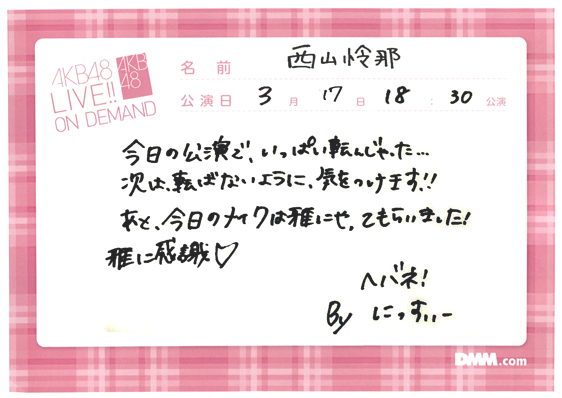 AKB48
LIVE!!
ON DEMAND
AKB
48
名前 西山怜那
公演日 3月17日 18:30公演
今日の公演で、いっぱい転んじゃった…
次は、転ばないように、気をつけます!!
あと、今日のメイクは雅にや、てもらいました!
雅に感謝♡
へバネ!
By にっすぃー
DMM.com